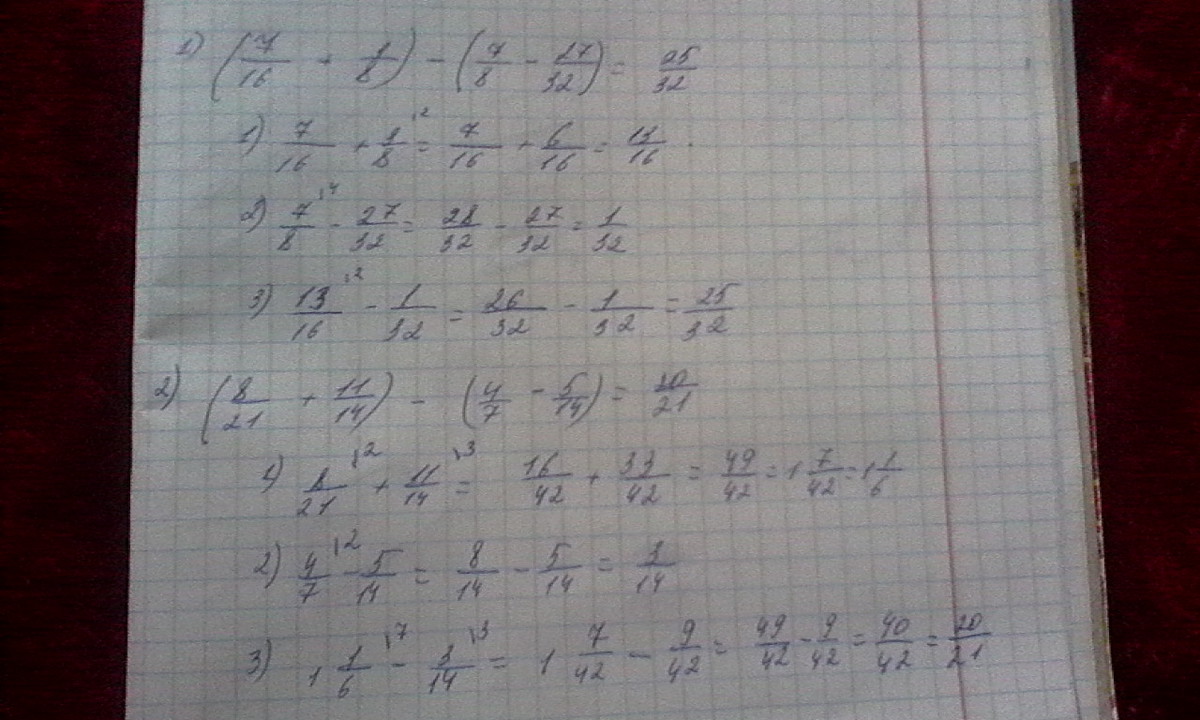 1) (7/16 + 3/8) - (7/8 - 27/32) = 25/32
1) 7/16 + 3/8 ˎ2 = 7/16 + 6/16 = 13/16 .
2) 7/8 ˎ4 - 27/32 = 28/32 - 27/32 = 1/32
3) 13/16 ˎ2 - 1/32 = 26/32 - 1/32 = 25/32
2) (8/21 + 11/14) - (4/7 - 5/14) = 20/21
1) 8/21 ˎ2 + 11/14 ˎ3 = 16/42 + 33/42 = 49/42 = 1 7/42 = 1 1/6
2) 4/7 ˎ2 - 5/14 = 8/14 - 5/14 = 3/14
3) 1 1/6 ˎ7 - 3/14 ˎ3 = 1 7/42 - 9/42 = 49/42 - 9/42 = 40/42 = 20/21